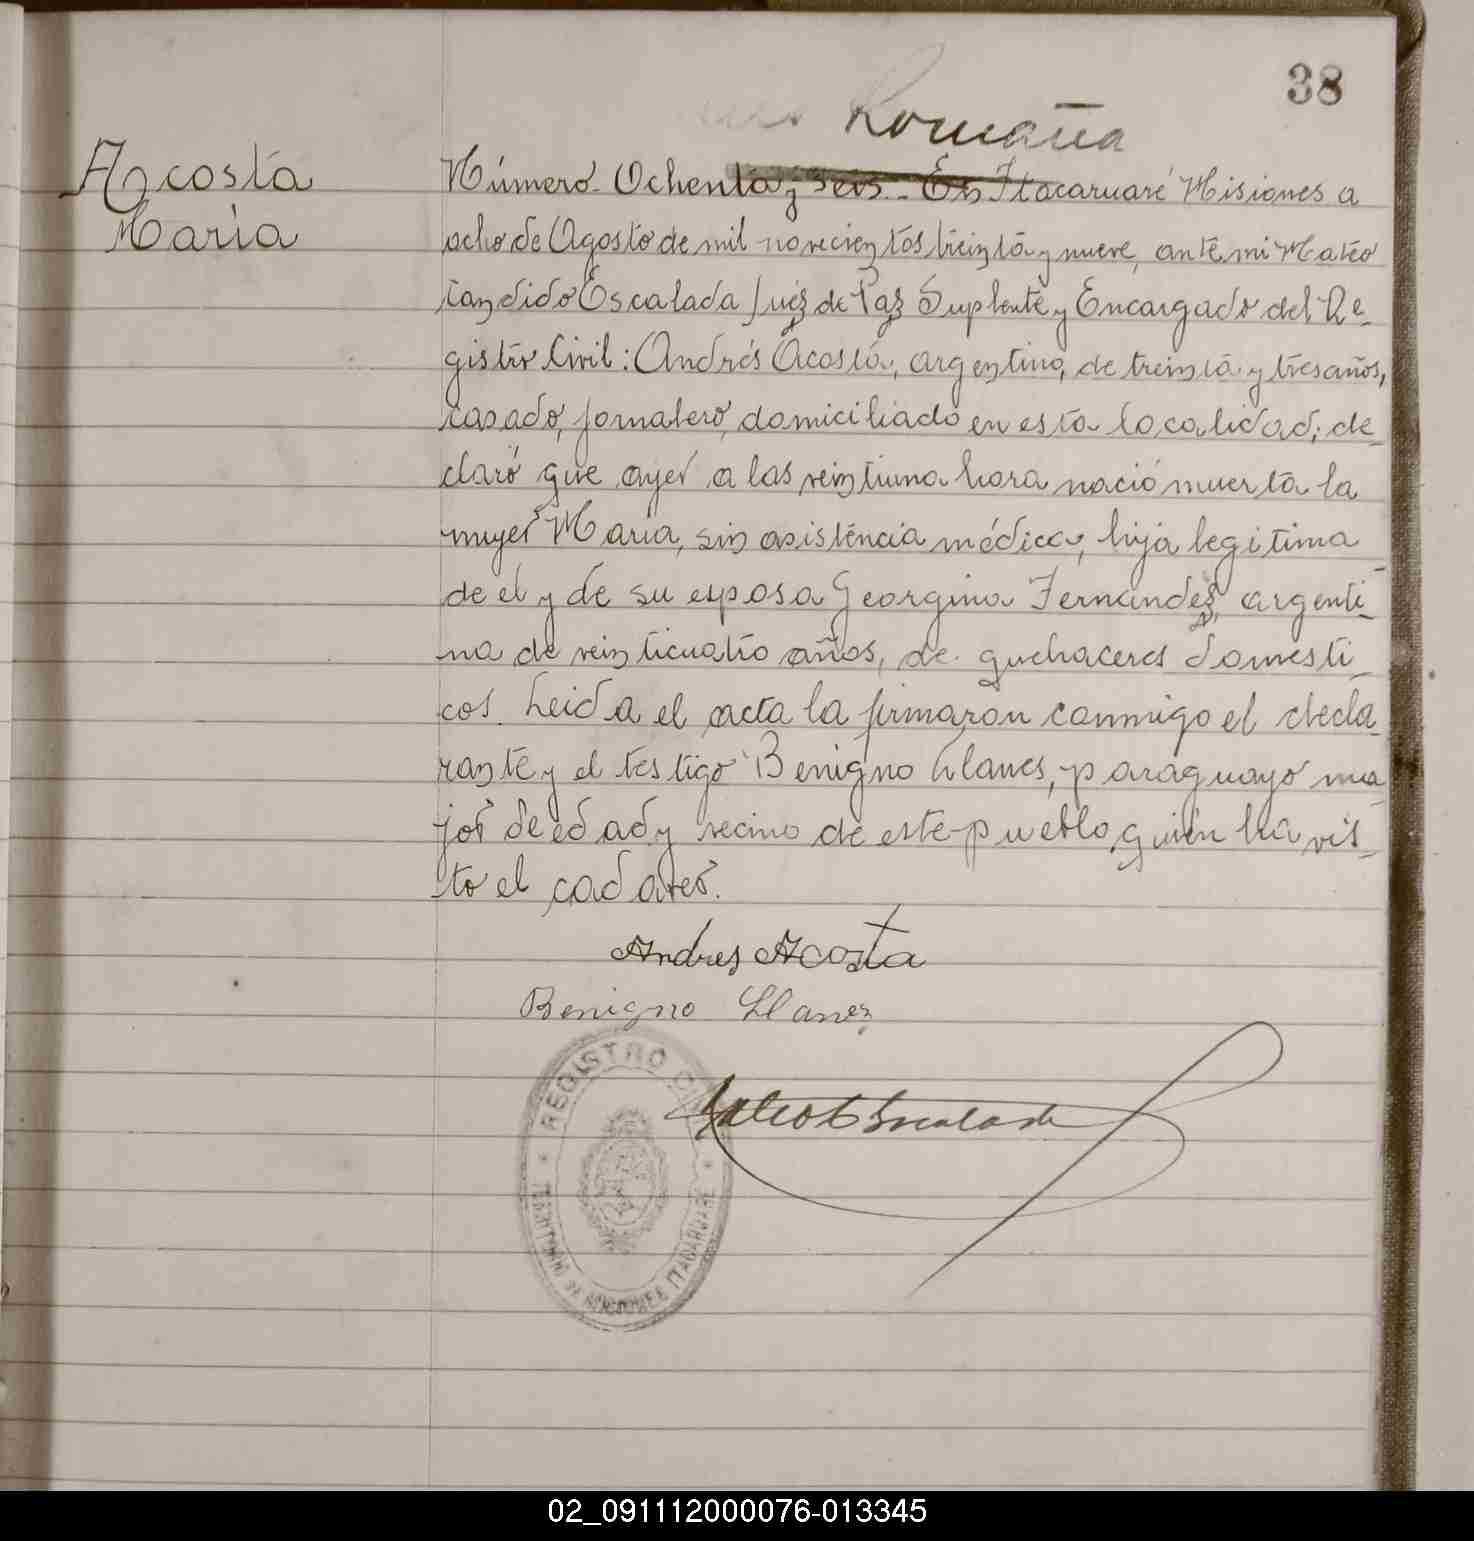 38
Romaña
Acosta
María
Número Ochenta y seis. En Itacaruaré Misiones a
ocho de Agosto de mil novecientos treinta y nueve, ante mi Mateo
Candido Escalada Juéz de Paz Suplente y Encargado del Re-
gistro Civil: Andrés Acosta, argentino, de treinta y tres años,
casado, jornalero, domiciliado en esta localidad; de-
claró que ayer a las veintiuna hora nació muerta la
mujer María, sin asistencia médica, hija legitima
de el y de su esposa Georgina Fernandez, argenti-
na de veinticuatro años, de quehaceres domesti-
cos. Leida el acta la firmaron conmigo el decla-
rante y el testigo Benigno Llanes, paraguayo ma-
jor de edad y vecino de este pueblo, quien ha vis-
to el cadaver.
Andres Acosta
Benigno Llanez
Mateo C Escalada
REGISTRO CIVIL
TERRITORIO DE MISIONES ITACARUARE
02_091112000076-013345